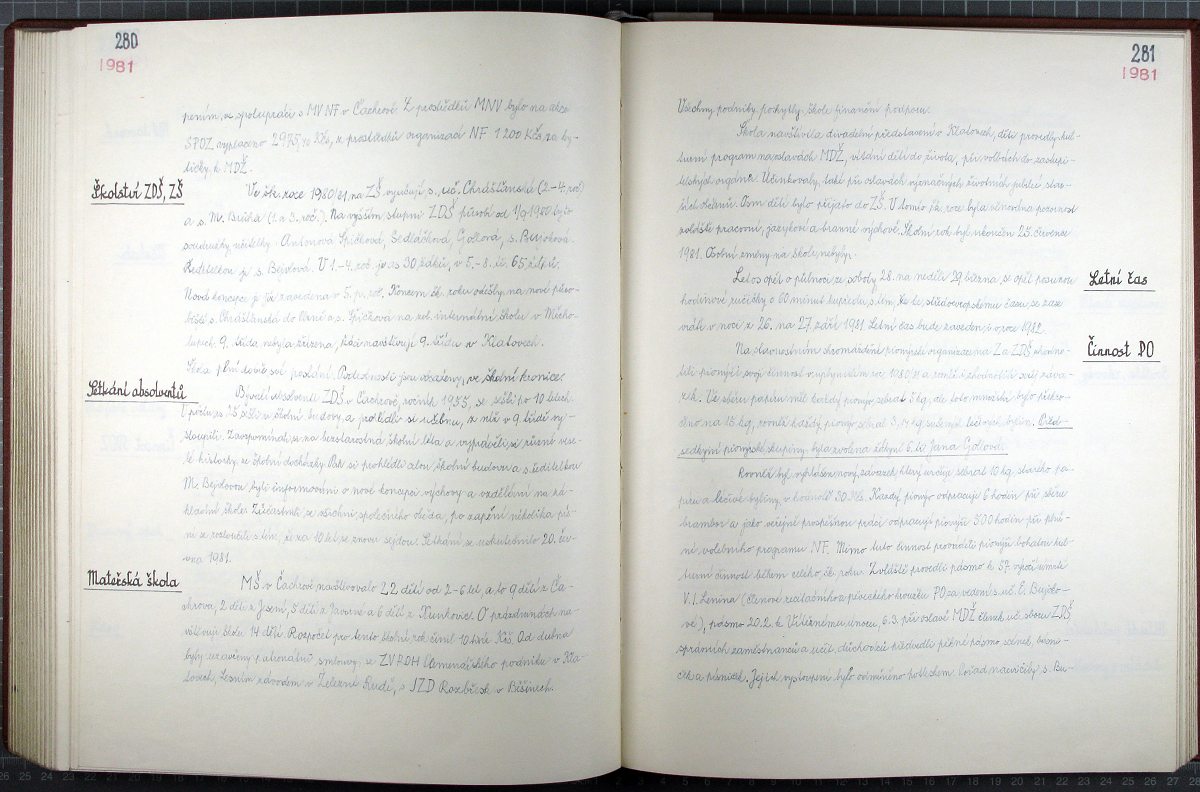 280
1981
ením, ve spolupráci s MV NF v Čachrově. Z prostředků MNV bylo na akce
SPOZ vyplaceno 2975,10 Kčs, z prostředků organizací NF 1 200 Kčs za ky-
tičky k MDŽ.
Školství ZDŠ, ZŠ
Ve šk. roce 1980/81 na ZŠ vyučují s. uč. Chrášťanská (2.-4. roč.)
a s. M. (1. a 3. roč.). Na vyšším stupni ZDŠ působí od 1/9 1980 tyto
soudružky učitelky: Antonová, Špičková, Sedláčková, Gollová, s. Bujoková.
Ředitelkou je s. Bejvlová. V 1.-4. roč. je 30 žáků, v 5.-8. tř. 65 žáků.
Nová koncepce je již zavedena v 5. p. roč. Koncem šk. roku odešly na nové půso-
biště s. Chrášťanská do a s. Špičková na zvl. internátní školu v Měcho-
lupech. 9. třída nebyla zřízena, žáci navštěvují 9. třídu v Klatovech.
Škola plní dobře své poslání. Podrobnosti jsou uvedeny ve školní kronice.
Setkání absolventů
Bývalí absolventi ZDŠ v Čachrově, ročník 1955, se sešli po 10 letech
v počtu 25 žáků v školní budově a poseděli si v učebně, z níž v 9. třídě vy-
stoupili. Zavzpomínali si na bezstarostná školní léta a vyprávěli si různé vese-
lé historky ze školní docházky. Pak si prohlédli celou školní budovu a s ředitelkou
M. Bejvlovou byli informováni o nové koncepci výchovy a vzdělání na zá-
kladní škole. Zúčastnili se všichni společného oběda, po zapění několika pís-
ní se rozloučili s tím, že za 10 let se znovu sejdou. Setkání se uskutečnilo 20. čer-
vna 1981.
Mateřská škola
MŠ v Čachrově navštěvovalo 22 dětí od 2-6 let, a to 9 dětí z Ča-
chrova, 2 děti z Jesení, 5 dětí z Javorné a 6 dětí z Kunkovic. O prázdninách na-
vštěvují školu 14 dětí. Rozpočet pro tento školní rok činil 10 tisíc Kčs. Od dubna
byly uzavřeny patronátní smlouvy se ZV ROH Kamenářského podniku v Kla-
tovech, Lesním závodem v Železné Rudě, s JZD Rozběsk v Běšinech.
281
1981
Všechny podniky poskytly škole finanční podporu.
Škola navštívila divadelní představení v Klatovech, děti provedly kul-
turní program na oslavách MDŽ, vítání dětí do života, při volbách do zastupi-
telských orgánů. Účinkovaly také při oslavách význačných životních jubileí star-
ších občanů. Osm dětí bylo přijato do ZŠ. V tomto šk. roce byla věnována pozornost
zvláště pracovní, jazykové a branné výchově. Školní rok byl ukončen 23. července
1981. Osobní změny na škole nebyly.
Letní čas
Letos opět o půlnoci ze soboty 28. na neděli 29. března se opět posunou
hodinové ručičky o 60 minut kupředu s tím, že ke středoevropskému času se zase
vrátí v noci z 26. na 27. září 1981. Letní čas bude zaveden i v roce 1982.
Činnost PO
Na slavnostním shromáždění pionýrské organizace na Z a ZDŠ zhodno-
tili pionýři svoji činnost v uplynulém roce 1980/81 a zároveň zhodnotili svůj záva-
zek. Ve sběru papíru měl každý pionýr sebrat 5 kg, ale toto množství bylo překro-
čeno na 15 kg, rovněž každý pionýr sebral 3,14 kg sušených léčivých bylin. Před-
sedkyní pionýrské skupiny byla zvolena žákyně 6. tř. Jana Gollová.
Rovněž byl vyhlášen nový závazek, který určuje sebrat 10 kg starého pa-
píru a léčivé byliny v hodnotě 30 Kčs. Každý pionýr odpracuje 6 hodin při sběru
brambor a jako veřejně prospěšnou práci odpracují pionýři 500 hodin při plně-
ní volebního programu NF. Mimo tuto činnost prováděli pionýři bohatou kul-
turní činnost během celého šk. roku. Zvláště provedli pásmo k 57. výročí úmrtí
V. I. Lenina (členové recitačního a pěveckého kroužku PO za vedení s. uč. E. Bujoko-
vé), pásmo 20.2. k Vítěznému únoru, 6.3. při oslavě MDŽ členek uč. sboru ZDŠ,
správních zaměstnanců a učit. důchodců předvedli pěkné pásmo scének, básni-
ček a písniček. Jejich vystoupení bylo odměněno potleskem. Pořad nacvičily s. Bu-